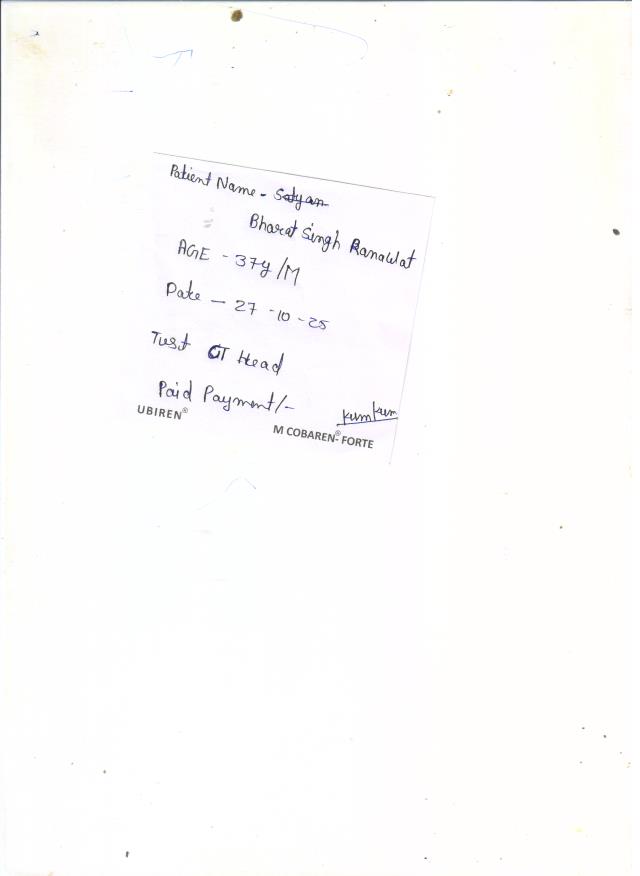 Patient Name - Satyan
Bharat Singh Ranawat
AGE - 37y/M
Date - 27-10-25
Test CT Head
Paid Payment/-
Kumkum
UBIREN®
M COBAREN®-FORTE